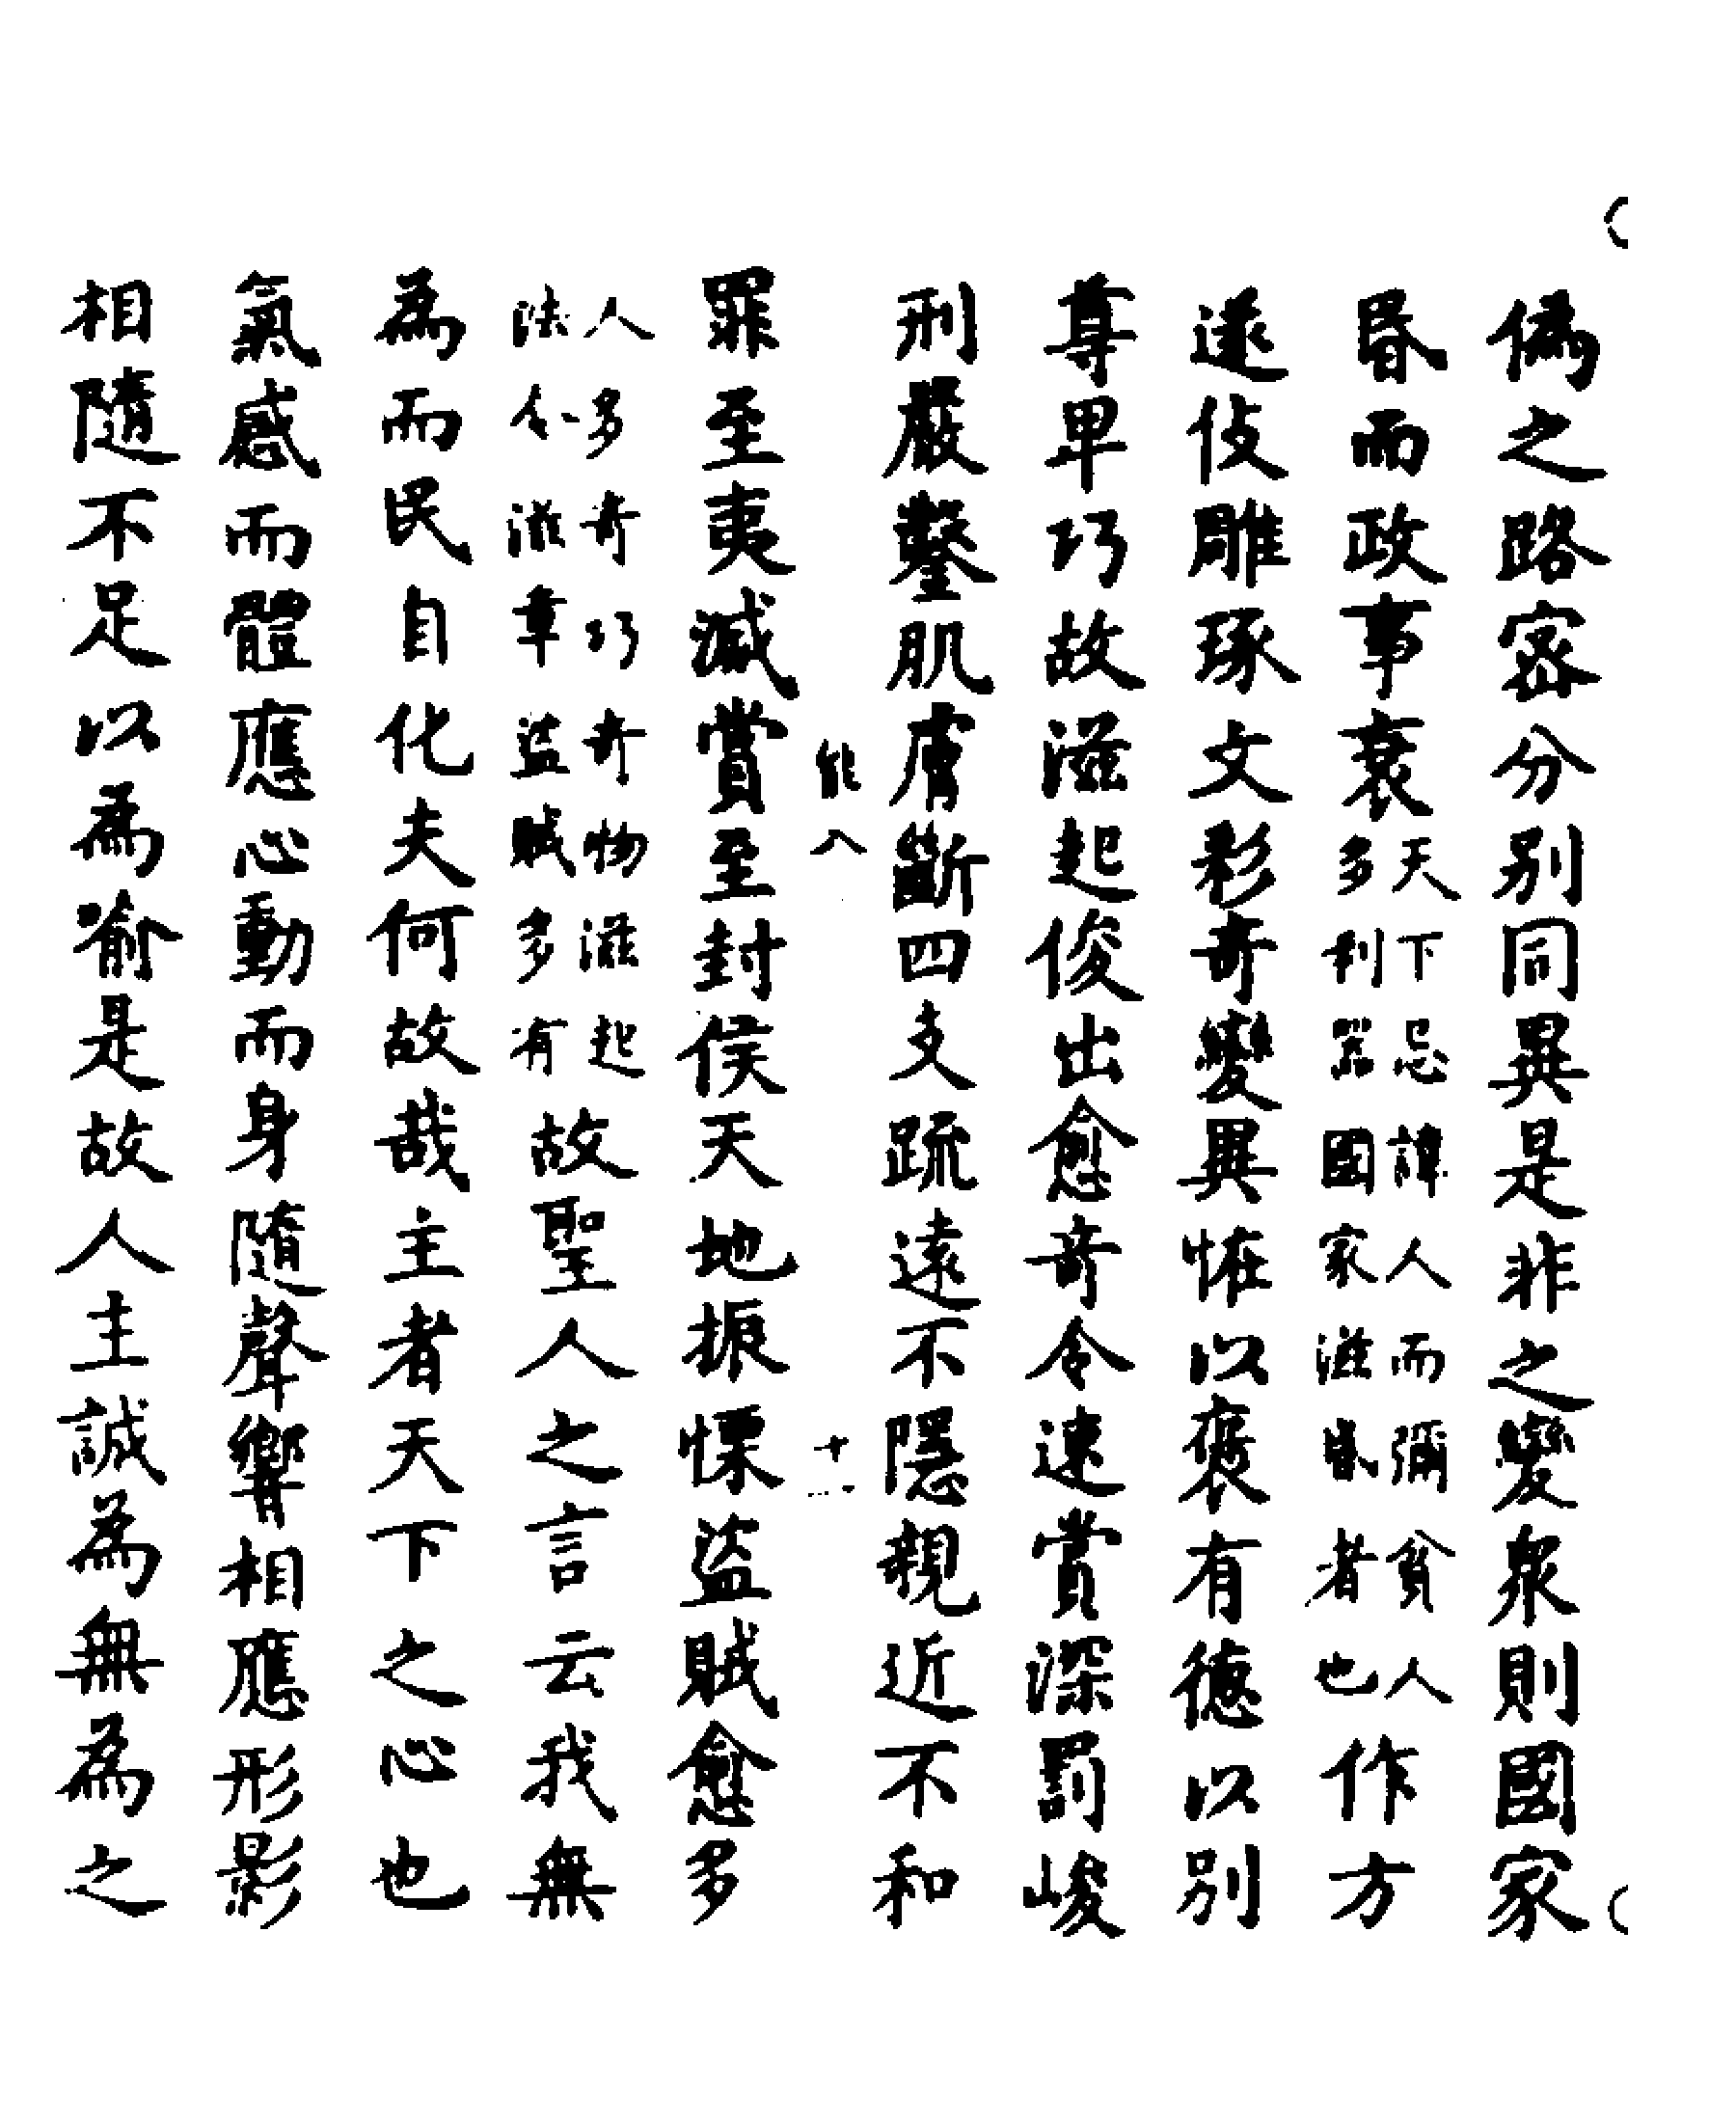 偽之路密分別同異是非之變衆則國家
昬而政事衰天下忌諱人而彌貧人多利器國家滋昬者也作方
遂伎雕琢文彩奇變異恠以褒有德以別
尊卑巧故滋起俊出愈奇令速賞深罰峻
刑嚴鑿肌膚斷四支疏遠不隱親近不和
能八
十一
罪至夷滅賞至封侯天地振慄盜賊愈多
人多奇巧奇物滋起法令滋章盜賊多有故聖人之言云我無
為而民自化夫何故哉主者天下之心也
氣感而體應心動而身隨聲響相應形影
相隨不足以為喻是故人主誠為無為之